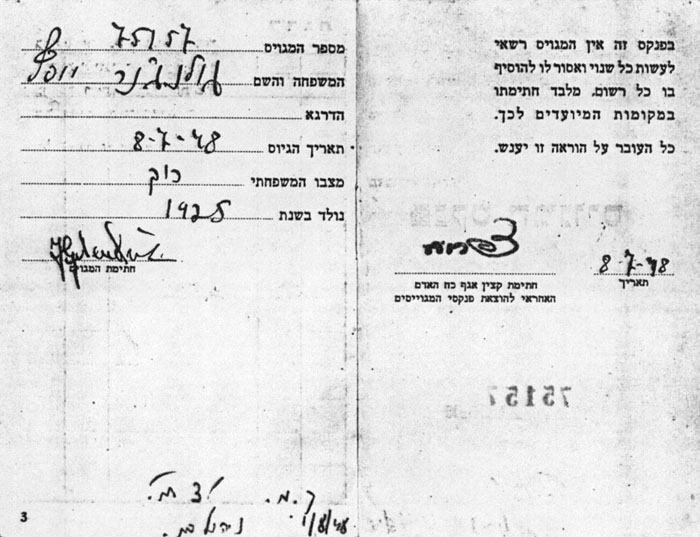 בפנקס זה אין המגויס רשאי
לעשות כל שנוי ואסור לו להוסיף
בו כל רשום, מלבד חתימתו
במקומות המיועדים לכך.
כל העובר על הוראה זו יענש.
8-7-48
תאריך
חתימת קצין אגף כח האדם
האחראי להוצאת פנקסי המגוייסים
75157
מספר המגויס 75157
המשפחה והשם
הדרגא
תאריך הגיוס 8-7-48
מצבו המשפחתי רוק
נולד בשנת 1925
חתימת המגויס
1/8/48
3